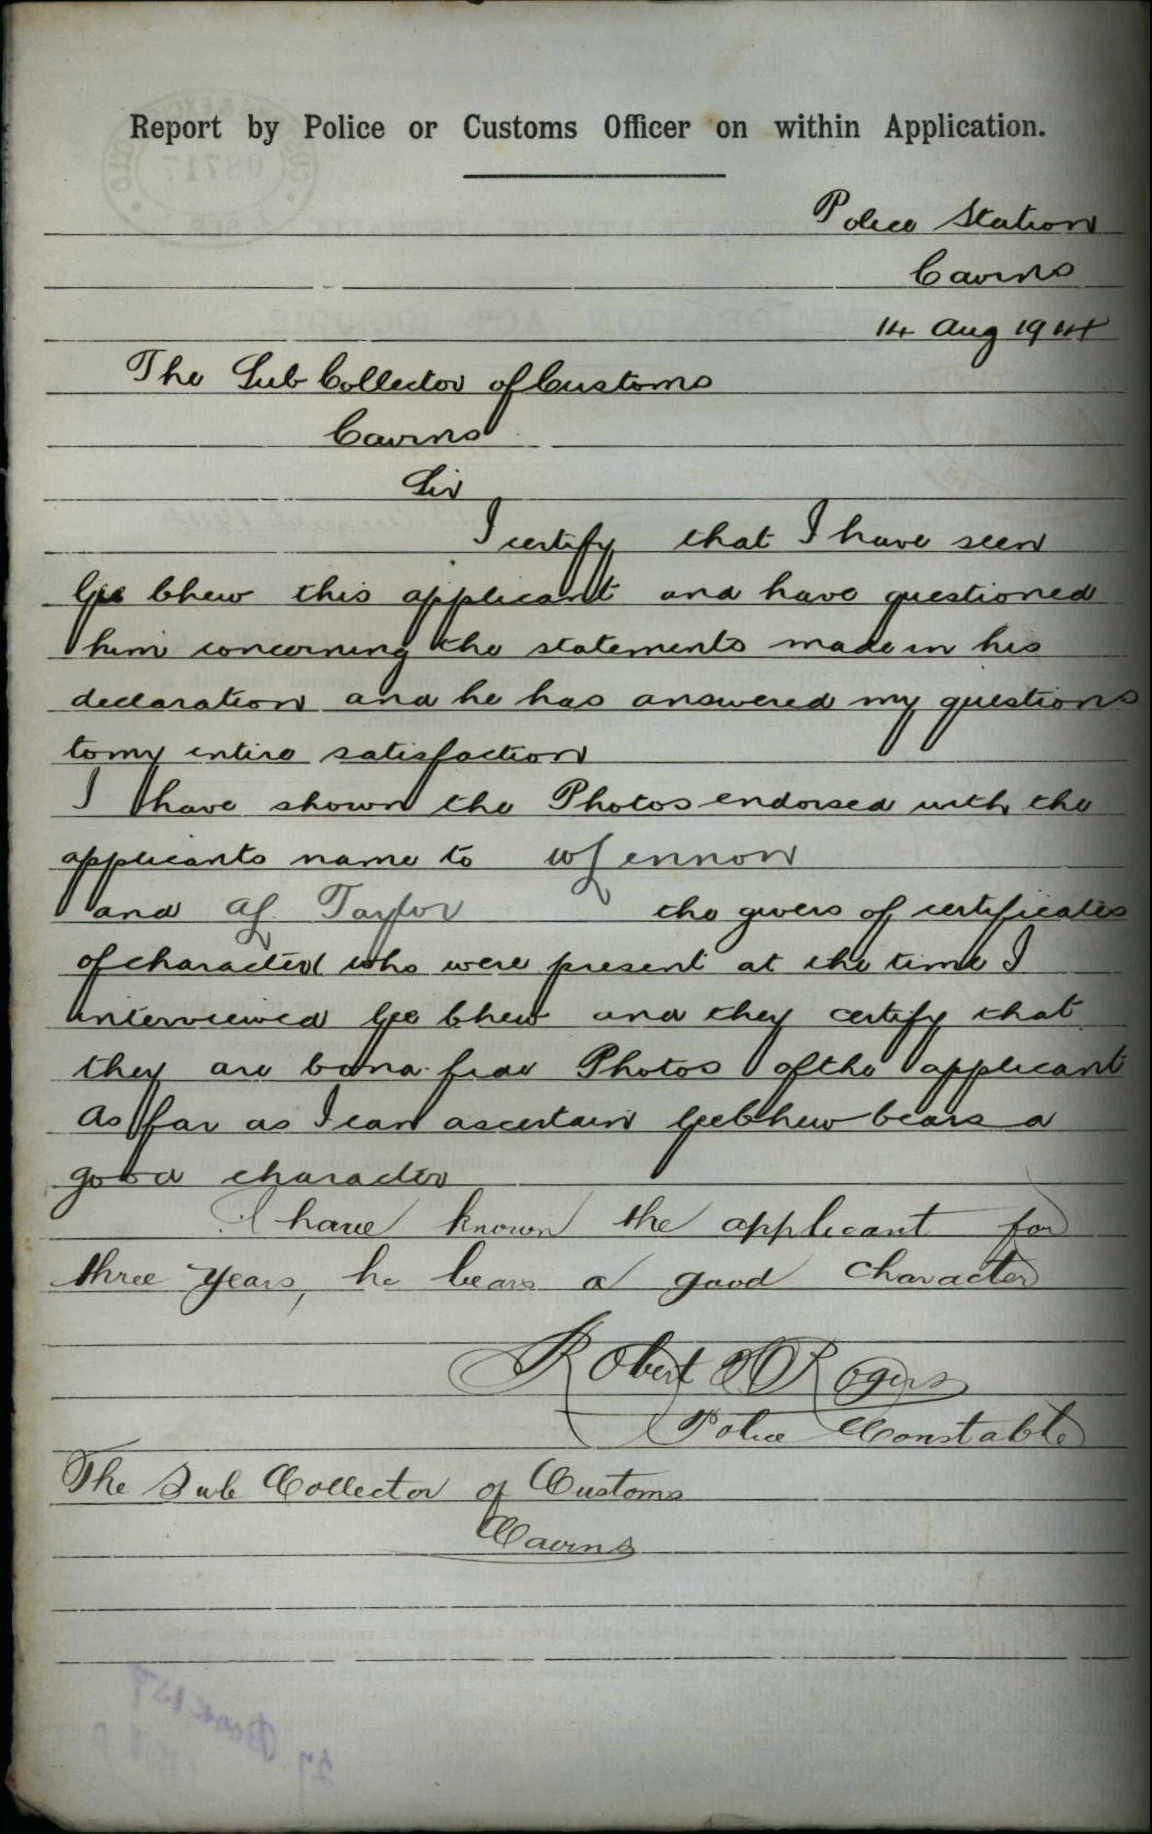 Report by Police or Customs Officer on within Application.
Police Station
Cairns
14 Aug 1914
The Sub Collector of Customs
Cairns
Sir
I certify that I have seen
Gee Chew this applicant and have questioned
him concerning the statements made in his
declaration and he has answered my questions
to my entire satisfaction
I have shown the Photos endorsed with the
applicants name to W Lennon
and A L Taylor the givers of certificates
of character who were present at the time I
interviewed Gee Chew and they certify that
they are bona fide Photos of the applicant
As far as I can ascertain Gee Chew bears a
good character
I have known the applicant for
three years, he bears a good character
Robert Rogers
Police Constable
The Sub Collector of Customs
Cairns